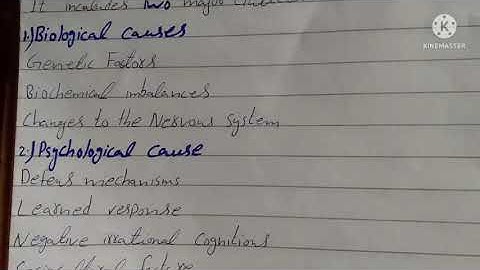 It includes two major
KINEMASTER
1.) Biological causes
Genetic Factors
Biochemical imbalances
Changes to the Nervous System
2.) Psychological cause
Defens mechanisms
Learned response
Negative irrational Cognitions